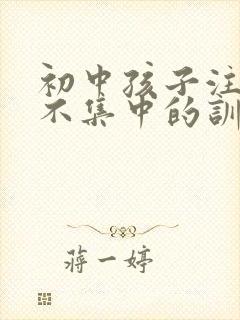 初中孩子注
不集中的訓
蔣一婷